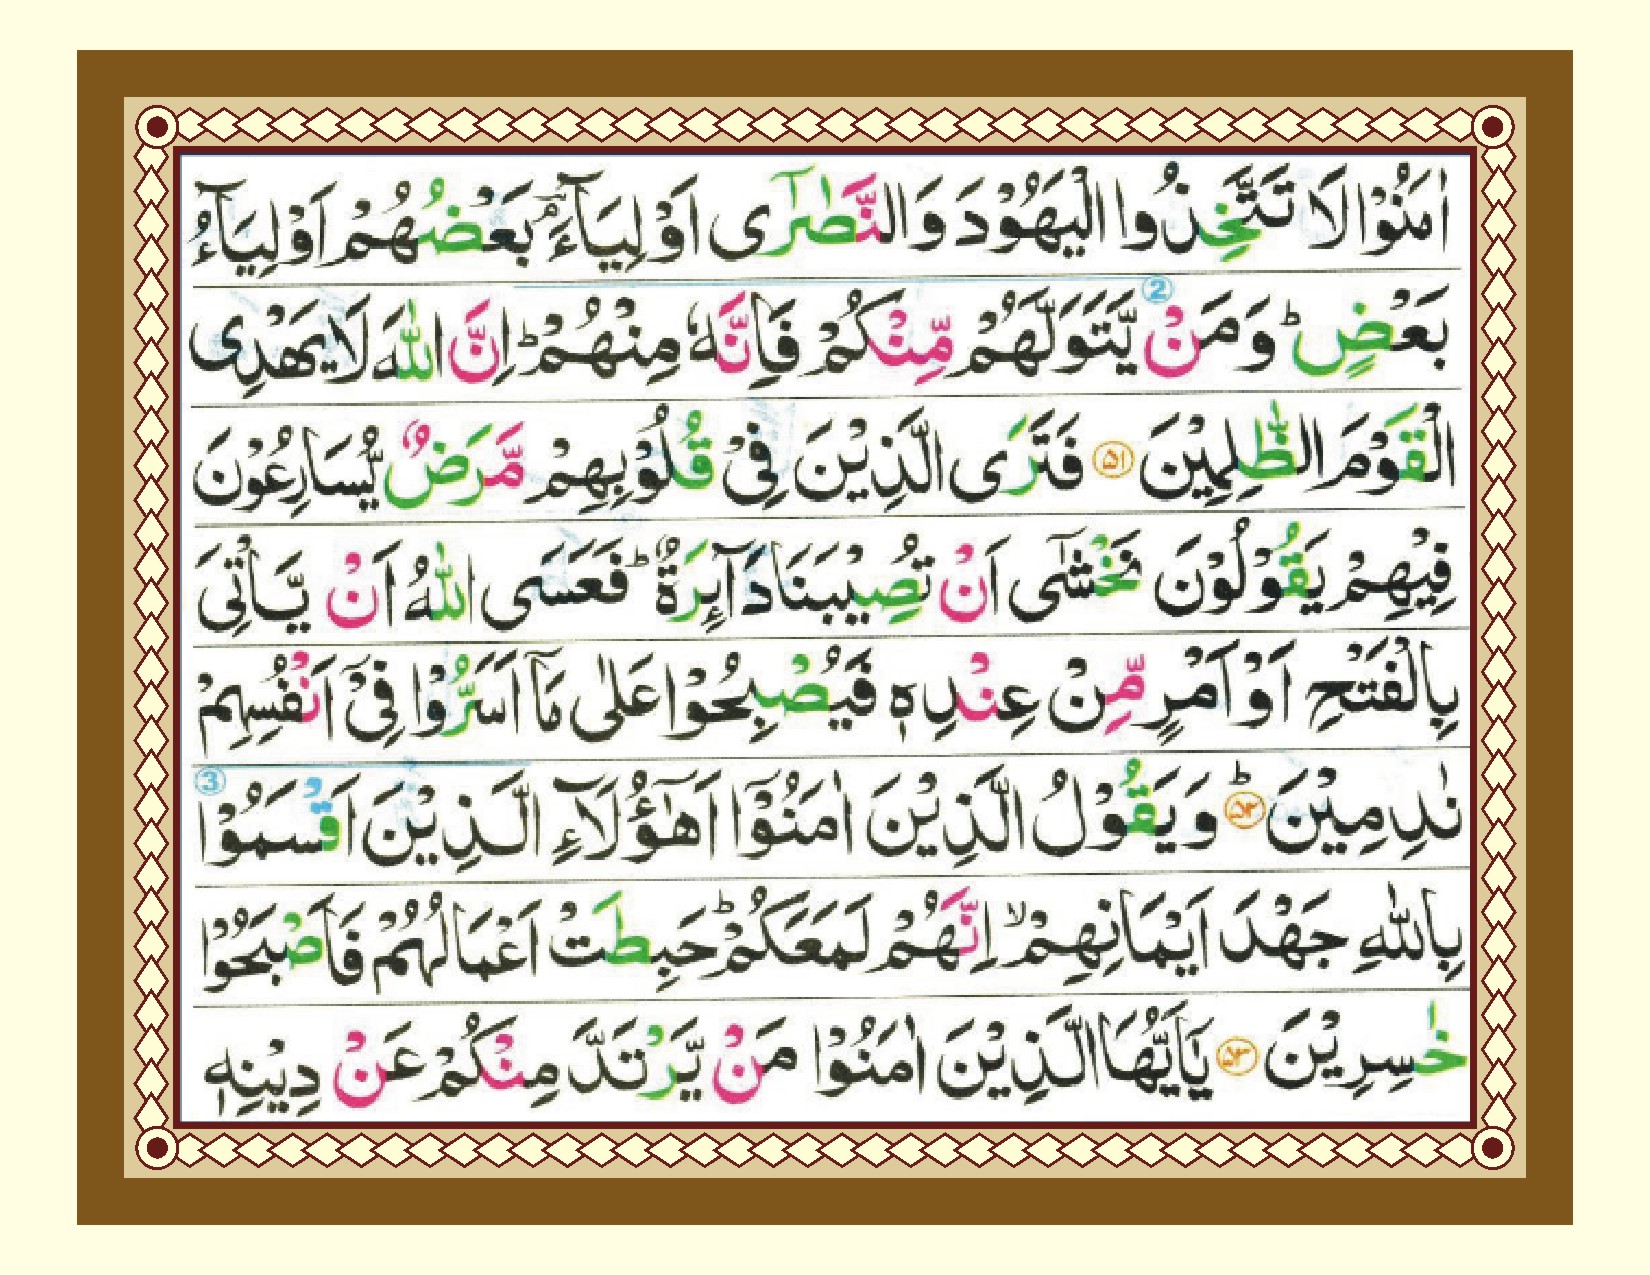 اٰمَنُوْا لَا تَتَّخِذُوا الْيَهُوْدَ وَالنَّصٰرٰۤى اَوْلِيَآءَ ؔۘ بَعْضُهُمْ اَوْلِيَآءُ
بَعْضٍ ؕ وَمَنْ يَّتَوَلَّهُمْ مِّنْكُمْ فَاِنَّهٗ مِنْهُمْ ؕ اِنَّ اللّٰهَ لَا يَهْدِى ②
الْقَوْمَ الظّٰلِمِيْنَ ۵۱ فَتَرَى الَّذِيْنَ فِىْ قُلُوْبِهِمْ مَّرَضٌ يُّسَارِعُوْنَ
فِيْهِمْ يَقُوْلُوْنَ نَخْشٰٓى اَنْ تُصِيْبَنَا دَآئِرَةٌ ؕ فَعَسَى اللّٰهُ اَنْ يَّاْتِىَ
بِالْفَتْحِ اَوْ اَمْرٍ مِّنْ عِنْدِهٖ فَيُصْبِحُوْا عَلٰى مَاۤ اَسَرُّوْا فِىْۤ اَنْفُسِهِمْ
نٰدِمِيْنَ ؕ ۵۲ وَيَقُوْلُ الَّذِيْنَ اٰمَنُوْۤا اَهٰٓؤُلَآءِ الَّذِيْنَ اَقْسَمُوْا ③
بِاللّٰهِ جَهْدَ اَيْمَانِهِمْ ۙ اِنَّهُمْ لَمَعَكُمْ ؕ حَبِطَتْ اَعْمَالُهُمْ فَاَصْبَحُوْا
خٰسِرِيْنَ ۵۳ يٰۤاَيُّهَا الَّذِيْنَ اٰمَنُوْا مَنْ يَّرْتَدَّ مِنْكُمْ عَنْ دِيْنِهٖ